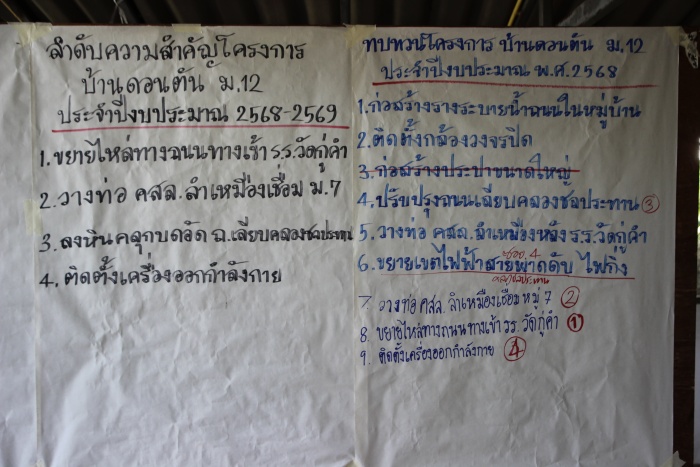 ลำดับความสำคัญโครงการ
บ้านดอนตัน ม.12
ประจำปีงบประมาณ 2568-2569
1. ขยายไหล่ทางถนนทางเข้า ร.ร.วัดกู่คำ
2. วางท่อ คสล. ลำเหมืองเชื่อม ม.7
3. ลงหินคลุกบดอัด ถ.เลียบคลองชลประทาน
4. ติดตั้งเครื่องออกกำลังกาย
ทบทวนโครงการ บ้านดอนตัน ม.12
ประจำปีงบประมาณ พ.ศ.2568
1. ก่อสร้างรางระบายน้ำถนนในหมู่บ้าน
2. ติดตั้งกล้องวงจรปิด
3. ก่อสร้างประปาขนาดใหญ่
4. ปรับปรุงถนนเลียบคลองชลประทาน ③
5. วางท่อ คสล. ลำเหมืองหลัง ร.ร.วัดกู่คำ
ซอย 4
6. ขยายเขตไฟฟ้าสายพาดดับ ไฟกิ่ง
7. วางท่อ คสล. ลำเหมืองเชื่อม หมู่ 7 ②
8. ขยายไหล่ทางถนนทางเข้า รร. วัดกู่คำ ①
9. ติดตั้งเครื่องออกกำลังกาย ④